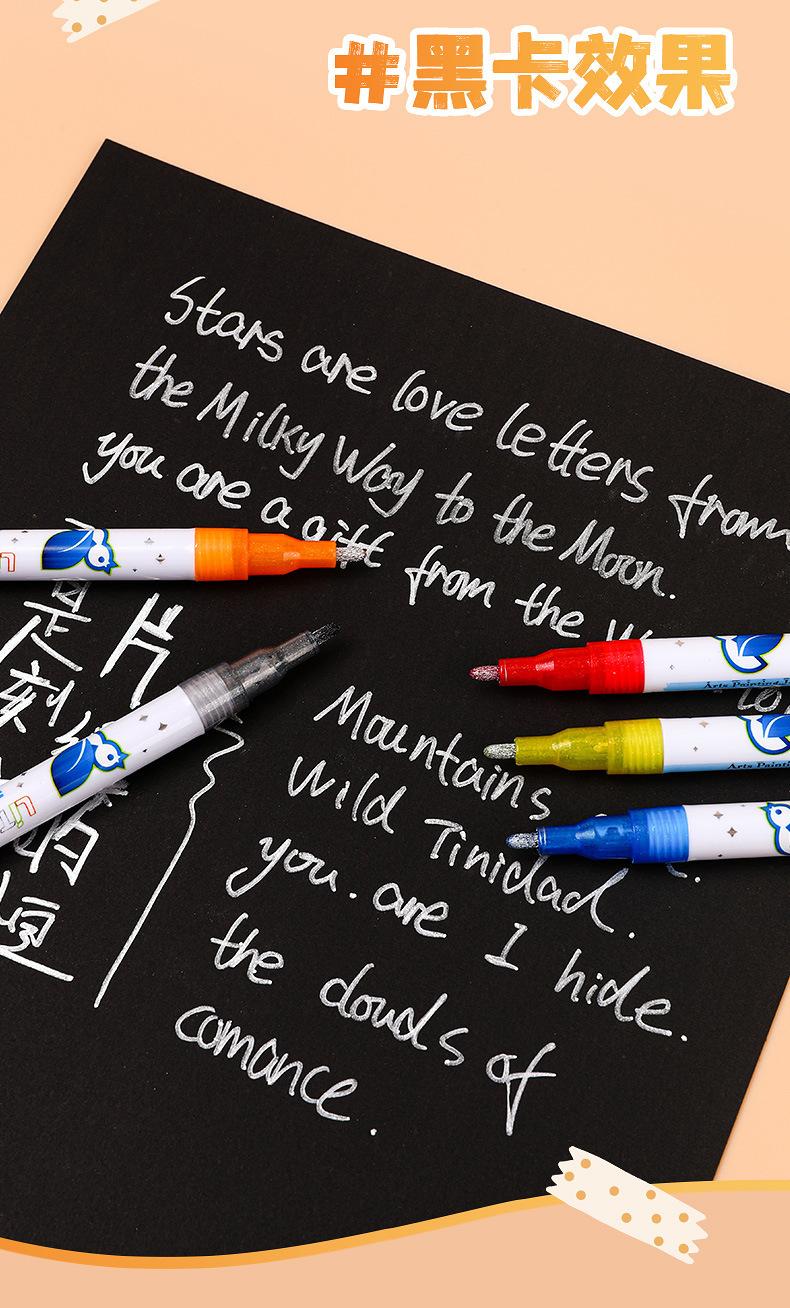 #黑卡效果
Stars are love letters from
the Milky Way to the Moon.
you are a gift from the W
是
片
刻
Mountains
Wild Tinidad.
you. are I hide.
the clouds of
comance.
Arts Painting
Arts Paint